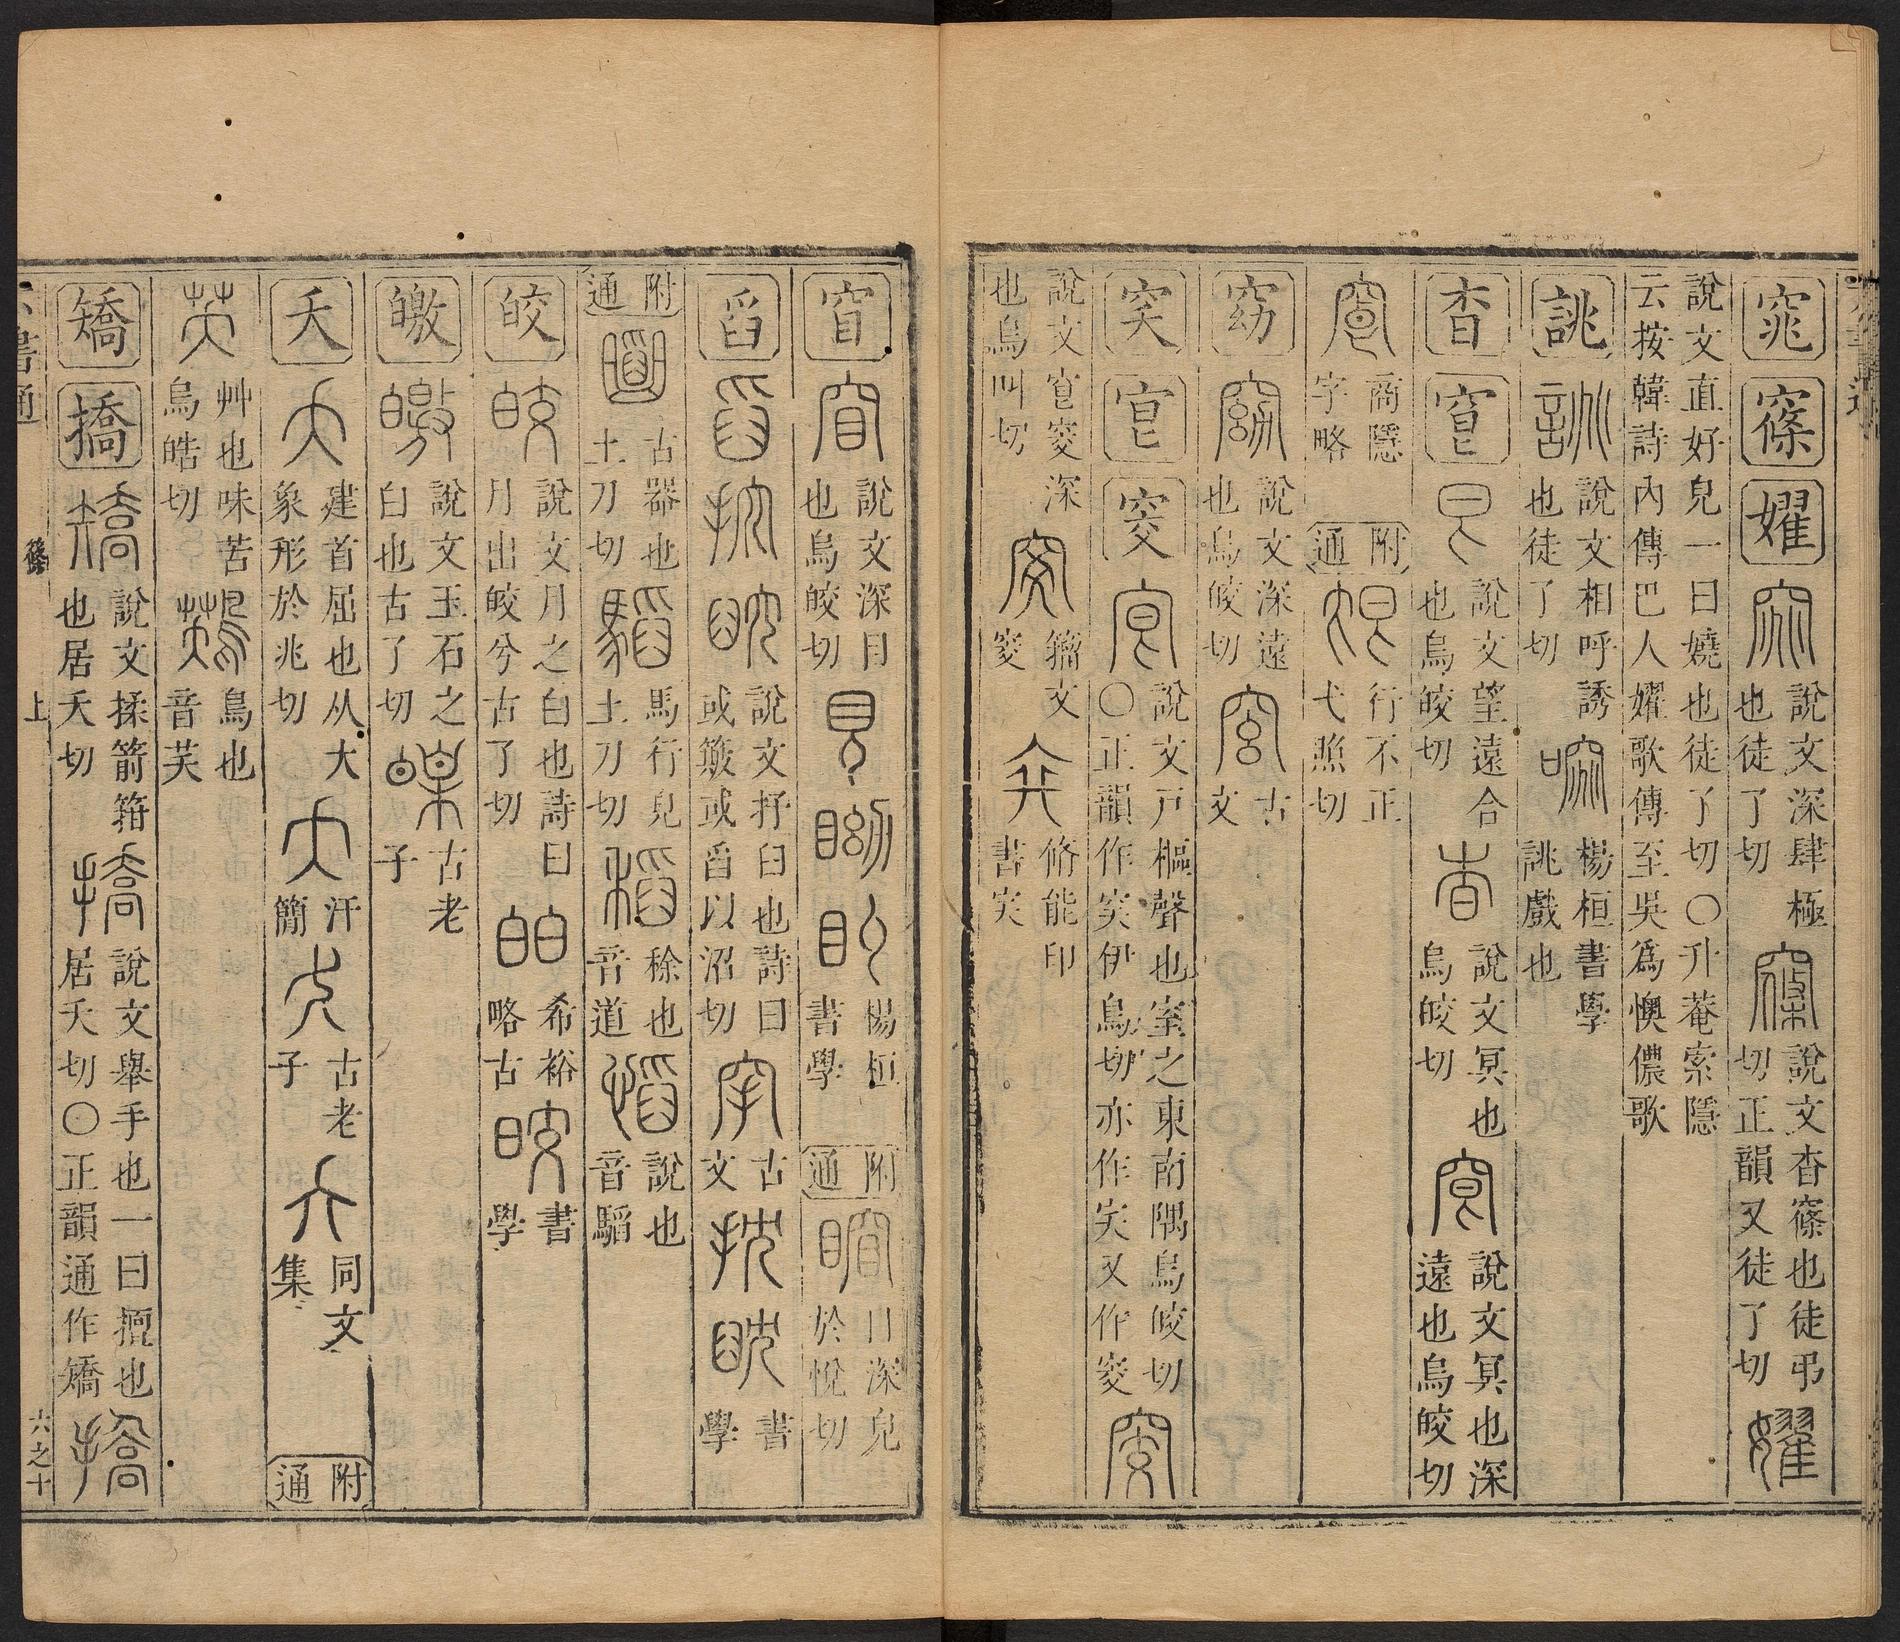 窕 窱 嬥 說文深肆極也徒了切 說文杳窱也徒弔切正韻又徒了切
說文直好皃一曰嬈也徒了切〇升菴索隱云按韓詩內傳巴人嬥歌傳至吳爲懊儂歌
誂 說文相呼誘也徒了切 楊桓書學誂戲也
杳 窅 說文望遠合也烏皎切 說文冥也烏皎切 說文冥也深遠也烏皎切
商隱字略 附通 行不正弋照切
窈 說文深遠也烏皎切 古文
穾 窔 說文戸樞聲也室之東南隅烏皎切〇正韻作穾伊鳥切亦作㝔又作窔
說文窔深也烏叫切 籀文窔 脩能印書穾
窅 說文深目也烏皎切 楊桓書學 附通 目深皃於悅切
舀 說文抒臼也詩曰或簸或舀以沼切 古文 書學
附通 古器也土刀切 馬行皃土刀切 稌也音道 說也音騊
皎 說文月之白也詩曰月出皎兮古了切 希裕略古 書學
皦 說文玉石之白也古了切 古老子
夭 建首屈也从大象形於兆切 汗簡 古老子 同文集 附通
艸也味苦烏皓切 鳥也音芺
矯 撟 說文揉箭箝也居夭切 說文舉手也一曰擅也居夭切〇正韻通作矯
六書通 篠 上 六之十